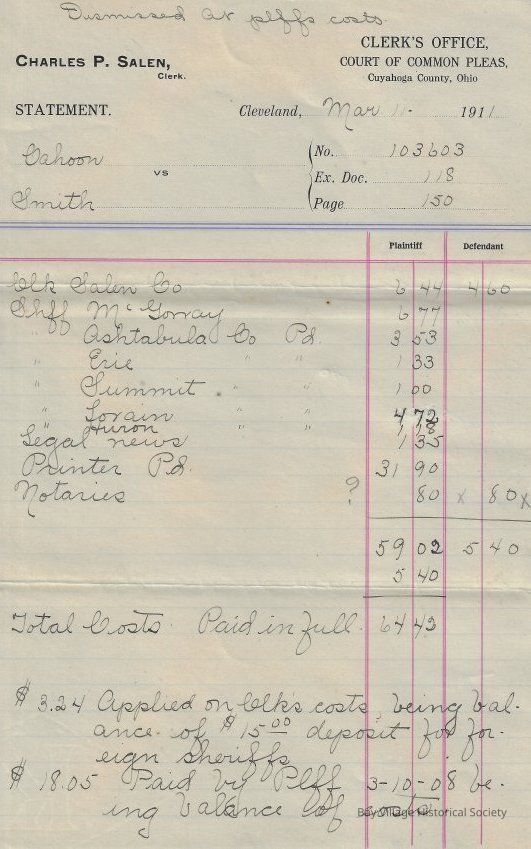 Dismissed at plffs costs.
CHARLES P. SALEN,
Clerk.
CLERK'S OFFICE,
COURT OF COMMON PLEAS,
Cuyahoga County, Ohio
STATEMENT.
Cleveland, Mar 11- 1911
Cahoon
vs
Smith
No. 103603
Ex. Doc. 118
Page 150
Plaintiff Defendant
Clk Salen Co 6 44 4 60
Shff McGorray 6 77
" Ashtabula Co Pd. 3 53
" Erie " " 1 33
" Summit " " 1 00
" Lorain " " 4 72
" Huron " " 1 18
Legal news 1 35
Printer Pd. 31 90
Notaries ? 80 x 80 x
59 02 5 40
5 40
Total Costs. Paid in full. 64 42
$ 3.24 Applied on Clk's costs, being bal-
ance of $15 00 deposit for for-
eign sheriffs
$ 18.05 Paid by Plff 3-10-08 be-
ing balance of
Bay Village Historical Society